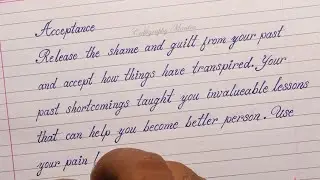 Acceptance
Release the shame and guilt from your past
and accept how things have transpired. Your
past shortcomings taught you invalueable lessons
that can help you become better person. Use
your pain